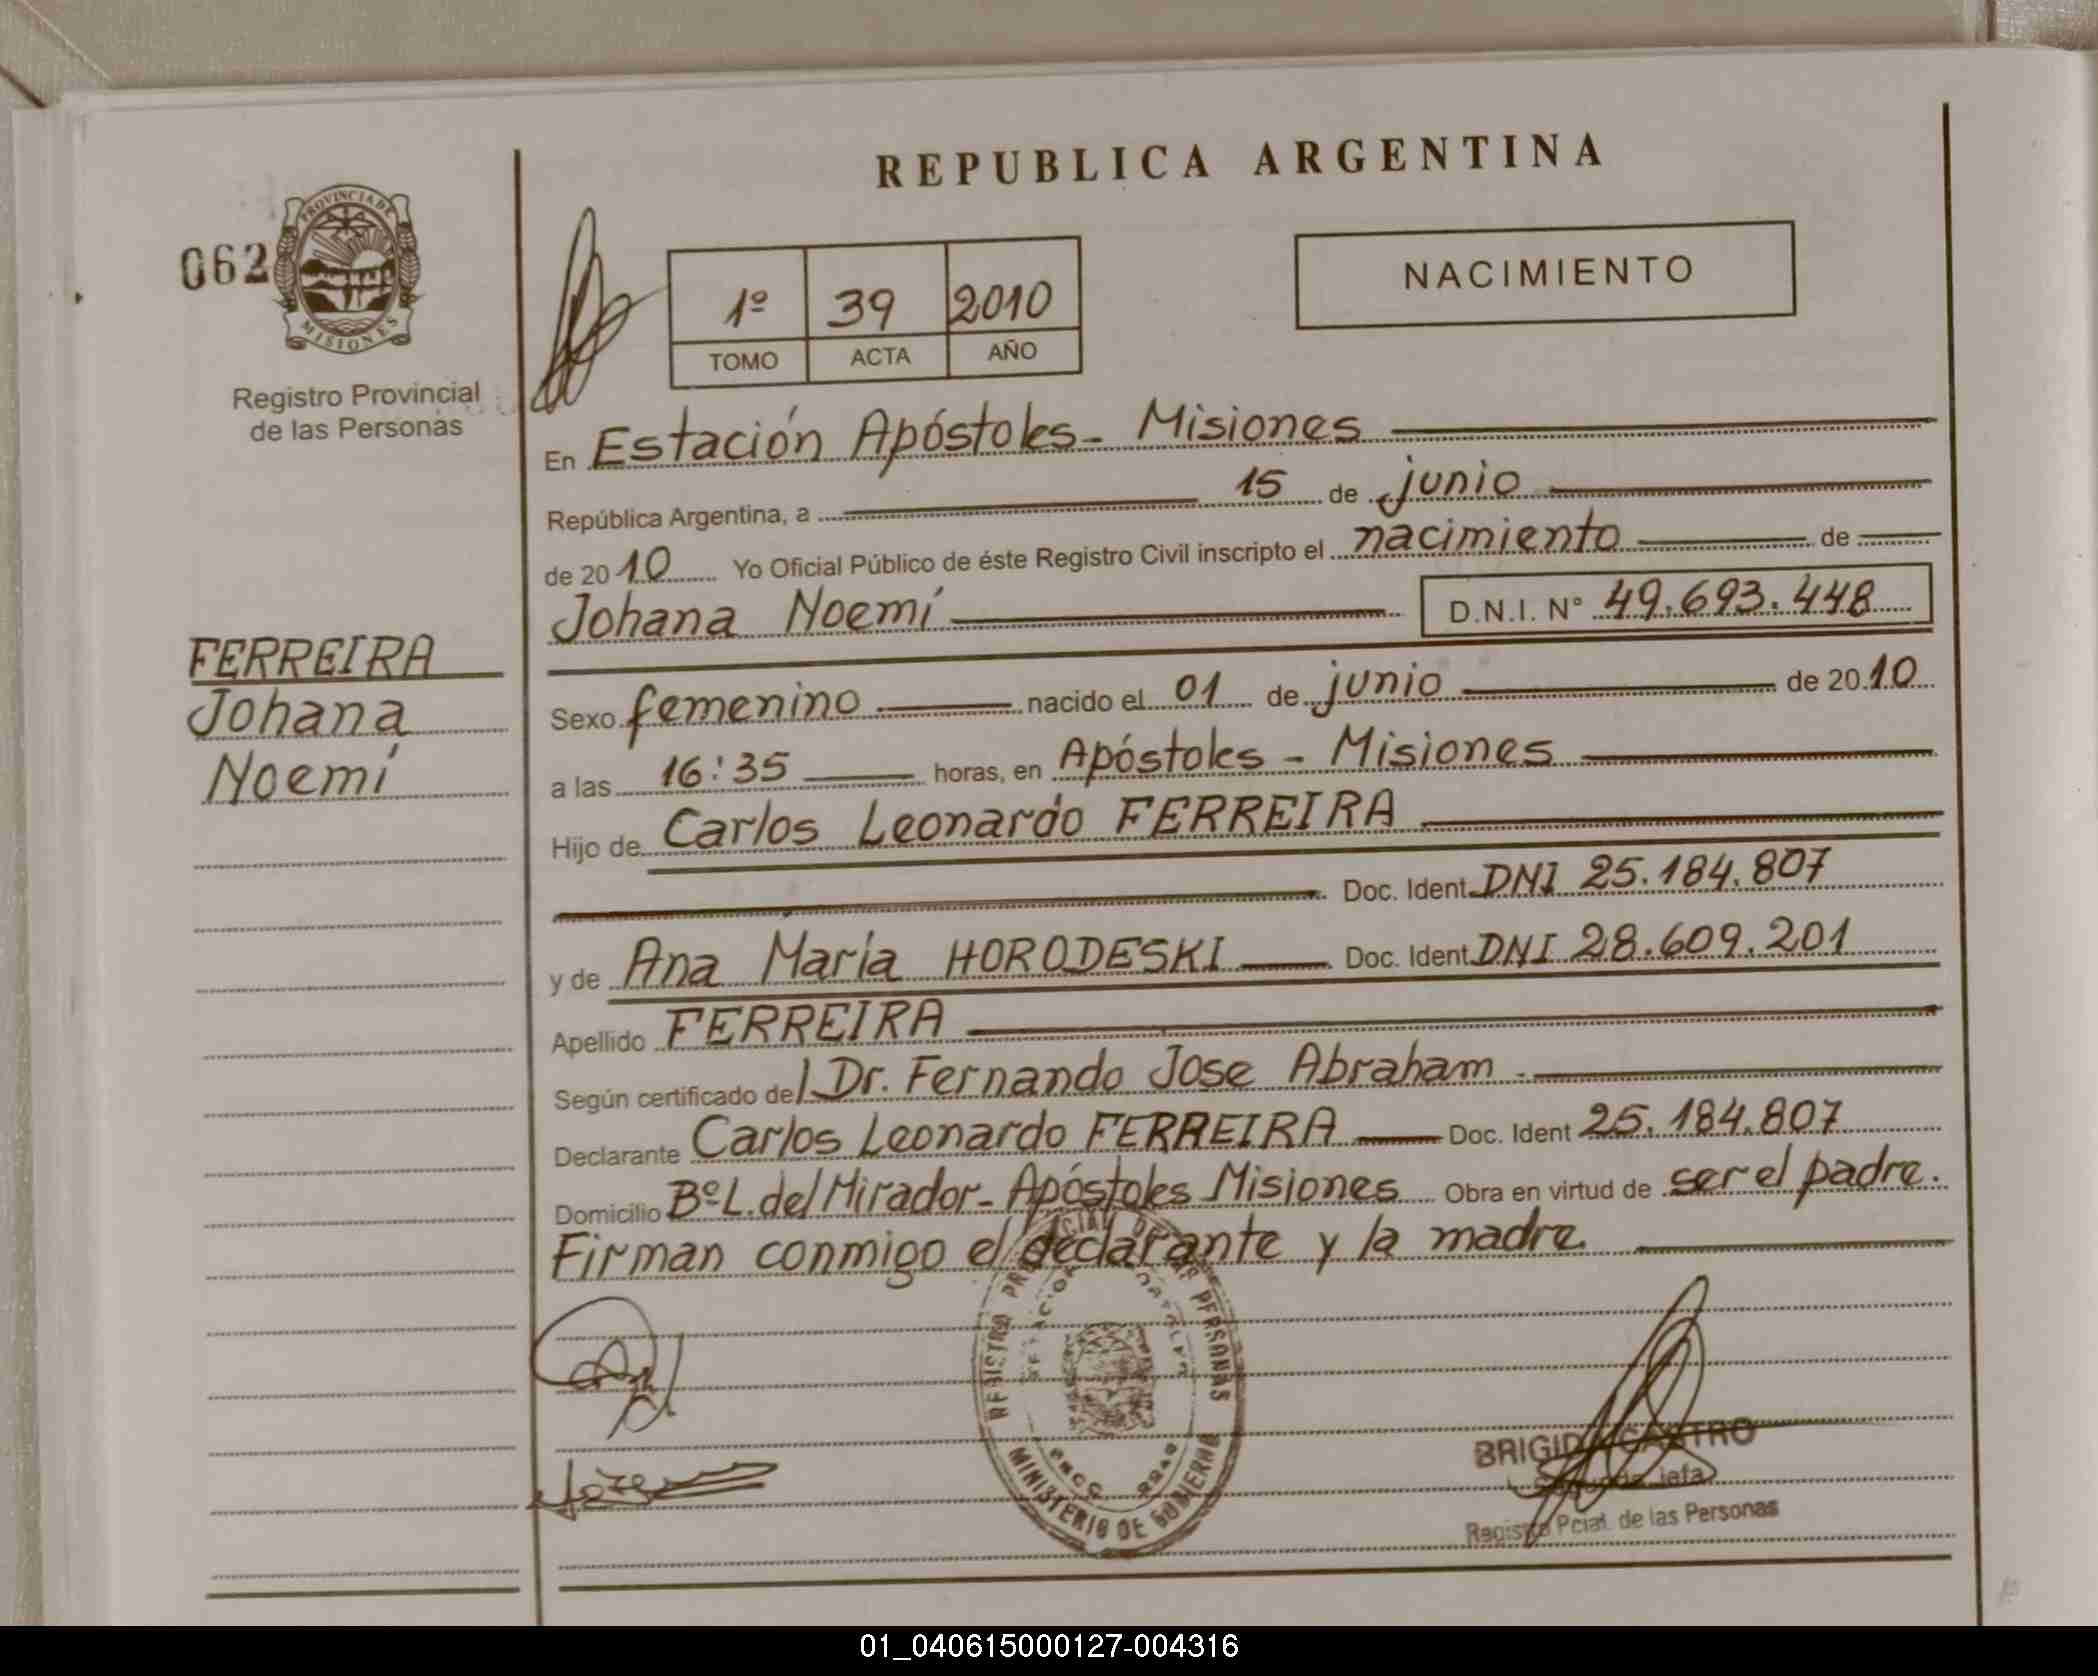 REPUBLICA ARGENTINA
062
PROVINCIA DE
MISIONES
Registro Provincial
de las Personas
1º 39 2010
TOMO ACTA AÑO
NACIMIENTO
En Estación Apóstoles - Misiones
República Argentina, a 15 de junio
de 2010 Yo Oficial Público de éste Registro Civil inscripto el nacimiento de
Johana Noemí D.N.I. N° 49.693.448
FERREIRA
Johana
Noemí
Sexo femenino nacido el 01 de junio de 2010
a las 16:35 horas, en Apóstoles - Misiones
Hijo de Carlos Leonardo FERREIRA
Doc. Ident. DNI 25.184.807
y de Ana María HORODESKI Doc. Ident. DNI 28.609.201
Apellido FERREIRA
Según certificado del Dr. Fernando Jose Abraham.
Declarante Carlos Leonardo FERREIRA Doc. Ident 25.184.807
Domicilio Bº L. del Mirador - Apóstoles Misiones Obra en virtud de ser el padre.
Firman conmigo el declarante y la madre.
REGISTRO PROVINCIAL DE LAS PERSONAS
MINISTERIO DE GOBIERNO
BRIGIDA CASTRO
Registro Pcial. de las Personas
01_040615000127-004316